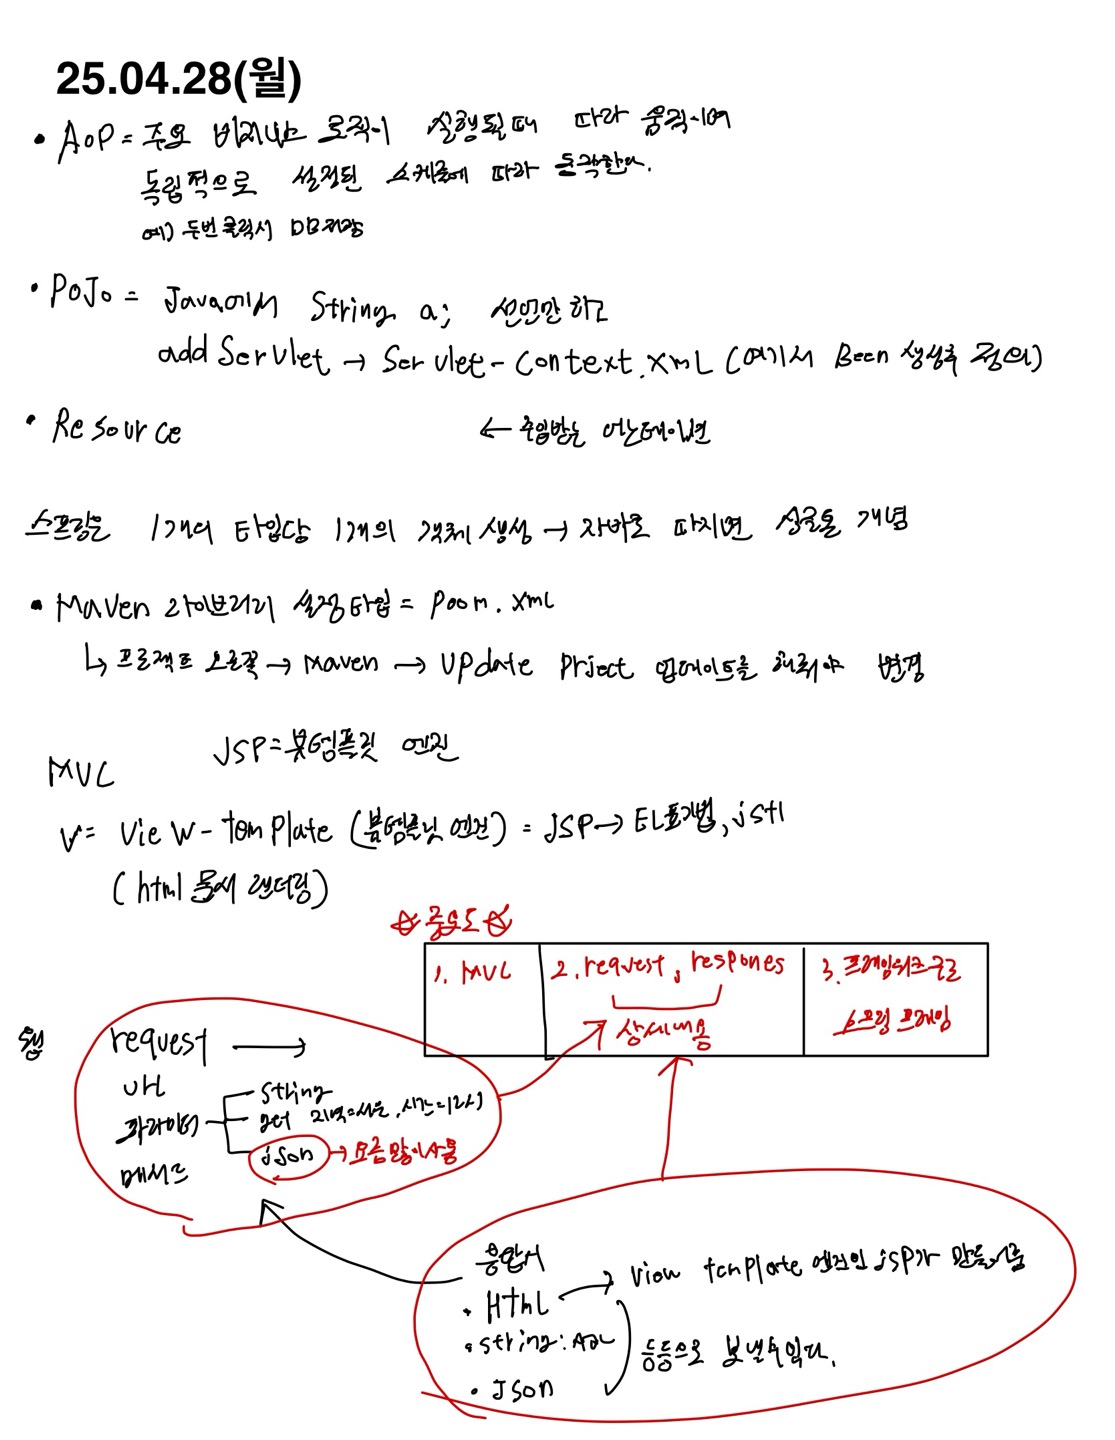 25.04.28(월)
• AoP = 주요 비지니스 로직이 실행될때 따라 움직이며
독립적으로 설정된 스케쥴에 따라 동작한다.
예) 두번클릭시 DB저장
• PoJo = Java에서 String a; 선언만 하고
add Servlet → Servlet-Context.xml (여기서 Been 생성후 정의)
• Resource ← 주입받는 어노테이션
스프링은 1개의 타입당 1개의 객체 생성 → 자바로 따지면 싱글톤 개념
• Maven 라이브러리 설정타입 = Poom.xml
↳ 프로젝트 오른쪽 → Maven → UPdate Prject 업데이트를 해줘야 변경
JSP = 뷰템플릿 엔진
MVC
V = VieW-temPlate (뷰템플릿 엔진) = JSP → EL표기법, jstl
(html 문서 랜더링)
☆중요도☆
1. MVC 2. request, respones 3. 프레임워크 구조
상세내용 스프링 프레임
웹 request →
url
파라미터 String
get 지역=서울, 시간=12시
json → 요즘많이사용
메서드
응답시
• Html → View temPlate 엔진인 jsp가 만들어줌
• String:
• Json
등등으로 보낼수있다.